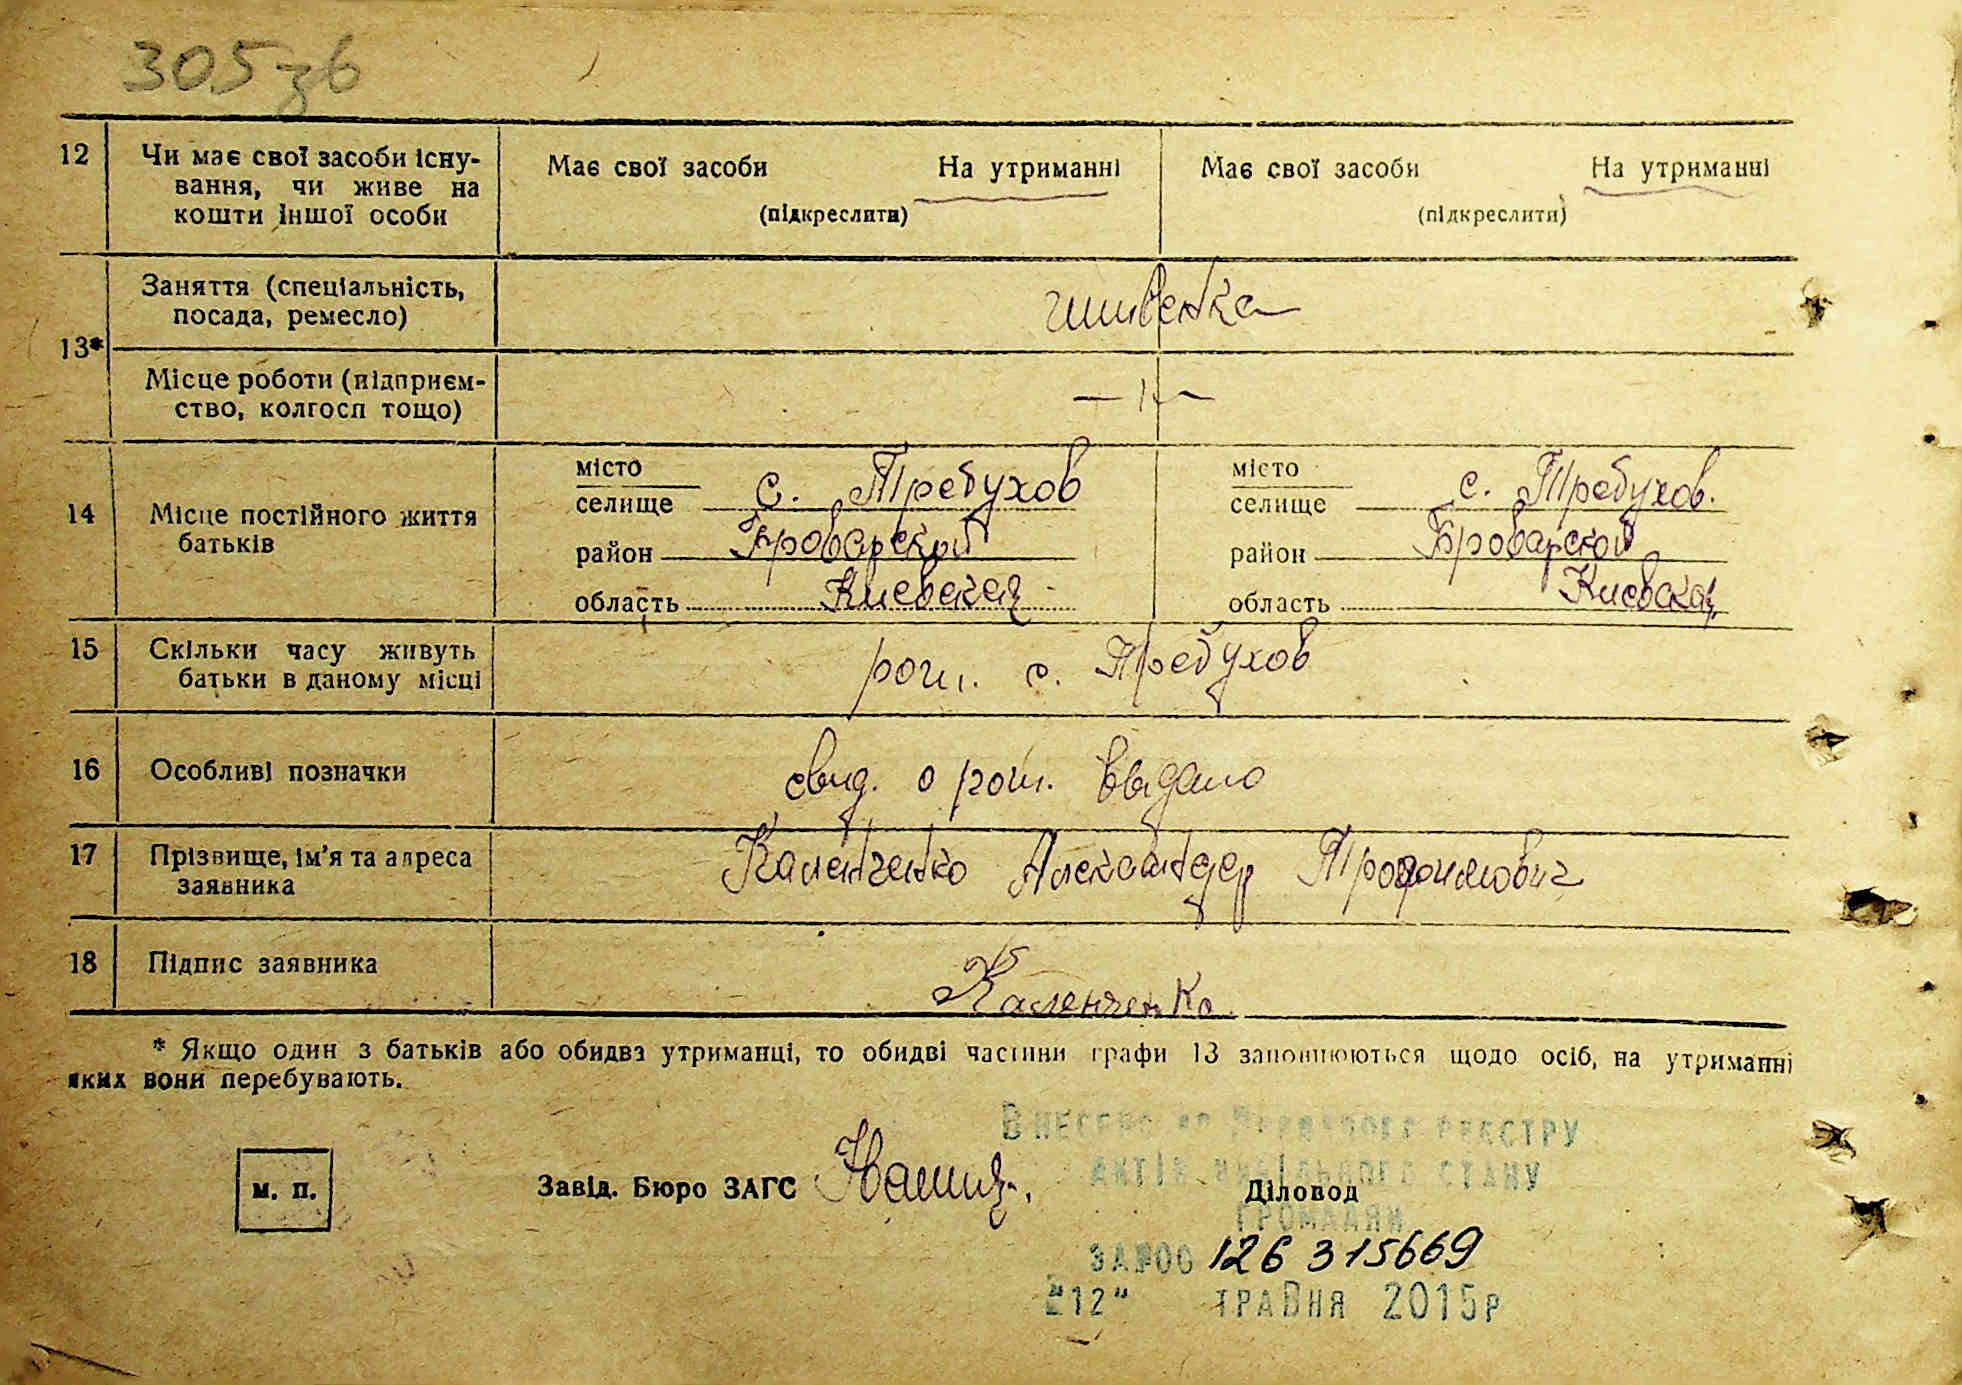 305зв
12 Чи має свої засоби існу-
вання, чи живе на
кошти іншої особи
Має свої засоби На утриманні
(підкреслити)
Має свої засоби На утриманні
(підкреслити)
13*
Заняття (спеціальність,
посада, ремесло)
Місце роботи (підприєм-
ство, колгосп тощо)
— ‖ —
14 Місце постійного життя
батьків
місто
селище с. Требухов
район Броварской
область Киевская
місто
селище с. Требухов.
район Броварской
область Киевская
15 Скільки часу живуть
батьки в даному місці
рож. с. Требухов
16 Особливі позначки
свид. о рож. выдано
17 Прізвище, ім’я та адреса
заявника
Каленченко Александр Трофимович
18 Підпис заявника
Каленченко
* Якщо один з батьків або обидва утриманці, то обидві частини графи 13 заповнюються щодо осіб, на утриманні
яких вони перебувають.
м. п.
Завід. Бюро ЗАГС
Діловод
Внесено до Державного реєстру
актів цивільного стану
громадян
за №00 126 315669
"12" травня 2015р